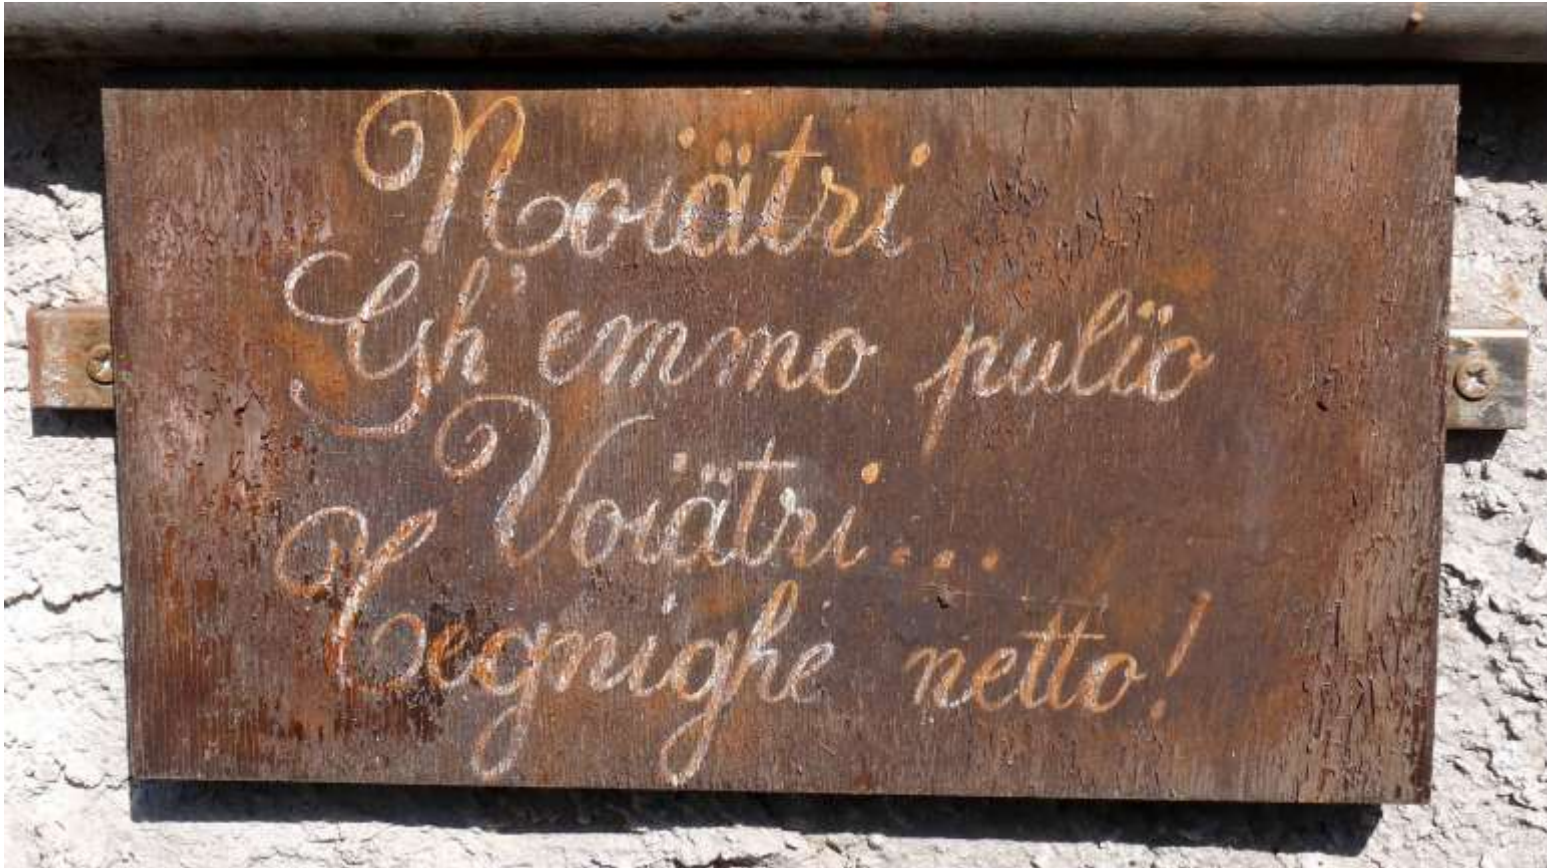 Noiätri
Gh'emmo pulïo
Voiätri...
Tegnighe netto!